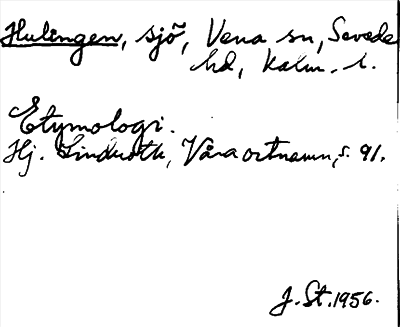 Hulingen, sjö, Vena sn, Sevede
hd, Kalm. l.
Etymologi.
Hj. Lindroth, Våra ortnamn, s. 91.
J. St. 1956.